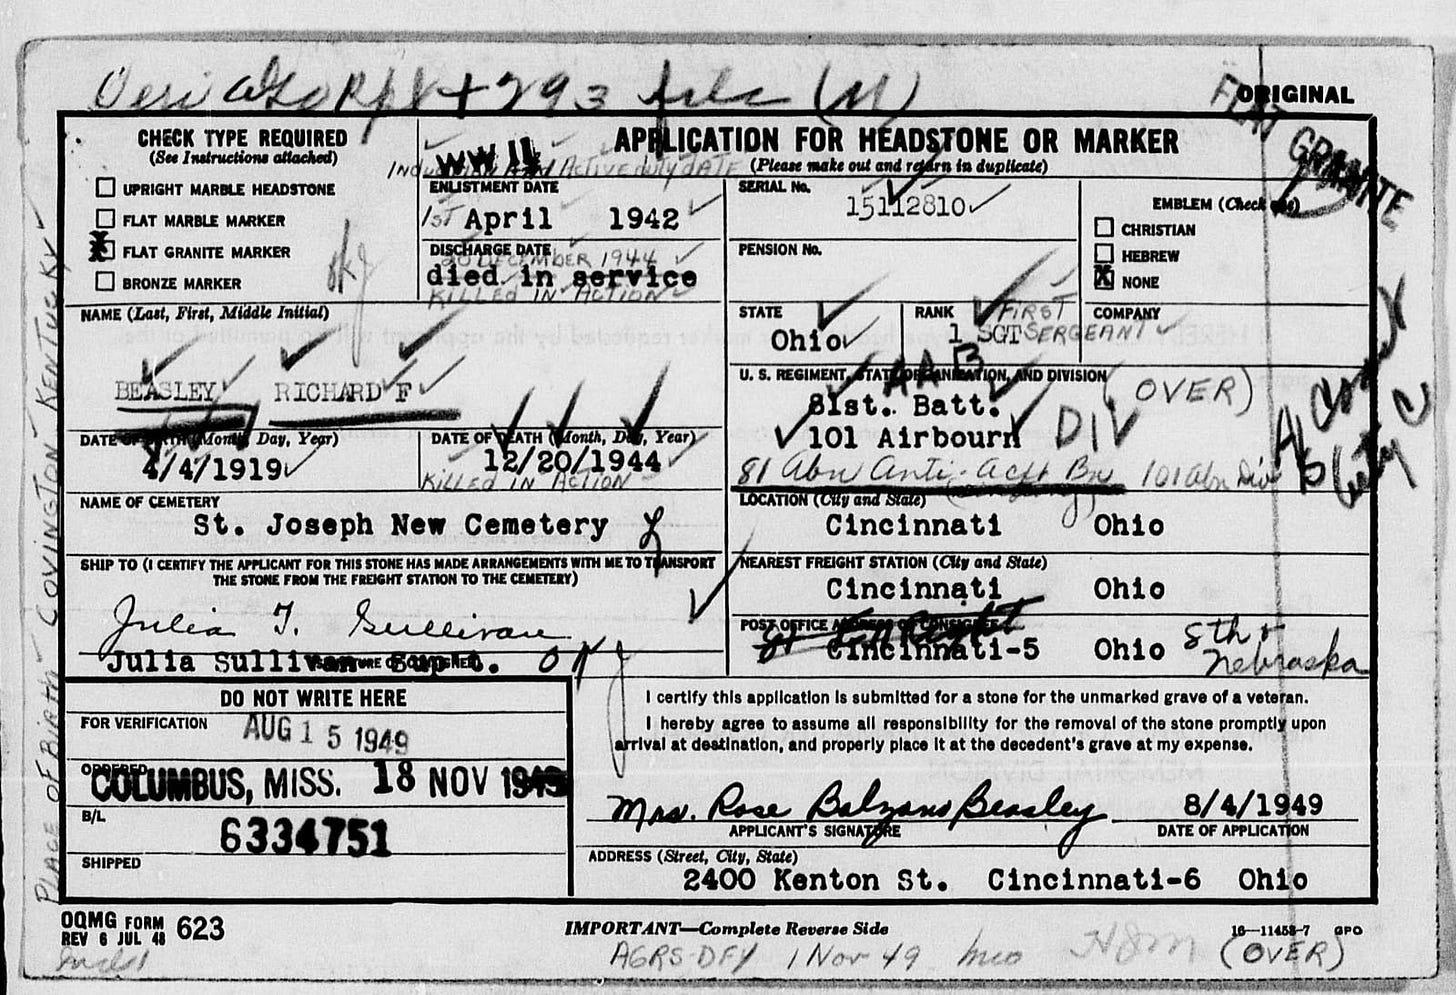 + 293 file (M)
ORIGINAL
FLAT GRANITE
CHECK TYPE REQUIRED
(See Instructions attached)
UPRIGHT MARBLE HEADSTONE
FLAT MARBLE MARKER
X FLAT GRANITE MARKER
BRONZE MARKER
WW II
APPLICATION FOR HEADSTONE OR MARKER
(Please make out and return in duplicate)
INDUCTION AND ACTIVE DUTY DATE
ENLISTMENT DATE
1ST April 1942
DISCHARGE DATE
20 DECEMBER 1944
died in service
KILLED IN ACTION
SERIAL No.
15112810
PENSION No.
EMBLEM (Check one)
CHRISTIAN
HEBREW
X NONE
NAME (Last, First, Middle Initial)
BEASLEY RICHARD F
STATE
Ohio
RANK
FIRST
1 SGT SERGEANT
COMPANY
U. S. REGIMENT, STATE ORGANIZATION, AND DIVISION
AAB
(OVER)
81st. Batt.
101 Airbourn DIV
81 Abn Anti-Acft Bn 101 Abn Div
DATE OF BIRTH (Month, Day, Year)
4/4/1919
DATE OF DEATH (Month, Day, Year)
12/20/1944
KILLED IN ACTION
NAME OF CEMETERY
St. Joseph New Cemetery
LOCATION (City and State)
Cincinnati Ohio
SHIP TO (I CERTIFY THE APPLICANT FOR THIS STONE HAS MADE ARRANGEMENTS WITH ME TO TRANSPORT
THE STONE FROM THE FREIGHT STATION TO THE CEMETERY)
Julia T. Sullivan
Julia Sullivan Supt. OK
SIGNATURE OF CONSIGNEE
NEAREST FREIGHT STATION (City and State)
Cincinnati Ohio
POST OFFICE ADDRESS OF CONSIGNEE
Cincinnati-5 Ohio 8th &
Nebraska
DO NOT WRITE HERE
FOR VERIFICATION
AUG 15 1949
ORDERED
COLUMBUS, MISS. 18 NOV 1949
B/L
6334751
SHIPPED
I certify this application is submitted for a stone for the unmarked grave of a veteran.
I hereby agree to assume all responsibility for the removal of the stone promptly upon
arrival at destination, and properly place it at the decedent's grave at my expense.
Mrs. Rose Balzano Beasley
8/4/1949
APPLICANT'S SIGNATURE
DATE OF APPLICATION
ADDRESS (Street, City, State)
2400 Kenton St. Cincinnati-6 Ohio
OQMG FORM 623
REV 6 JUL 48
IMPORTANT—Complete Reverse Side
16—11453-7 GPO
AGRS-DFY 1 Nov 49
(OVER)
PLACE OF BIRTH - COVINGTON - KENTUCKY